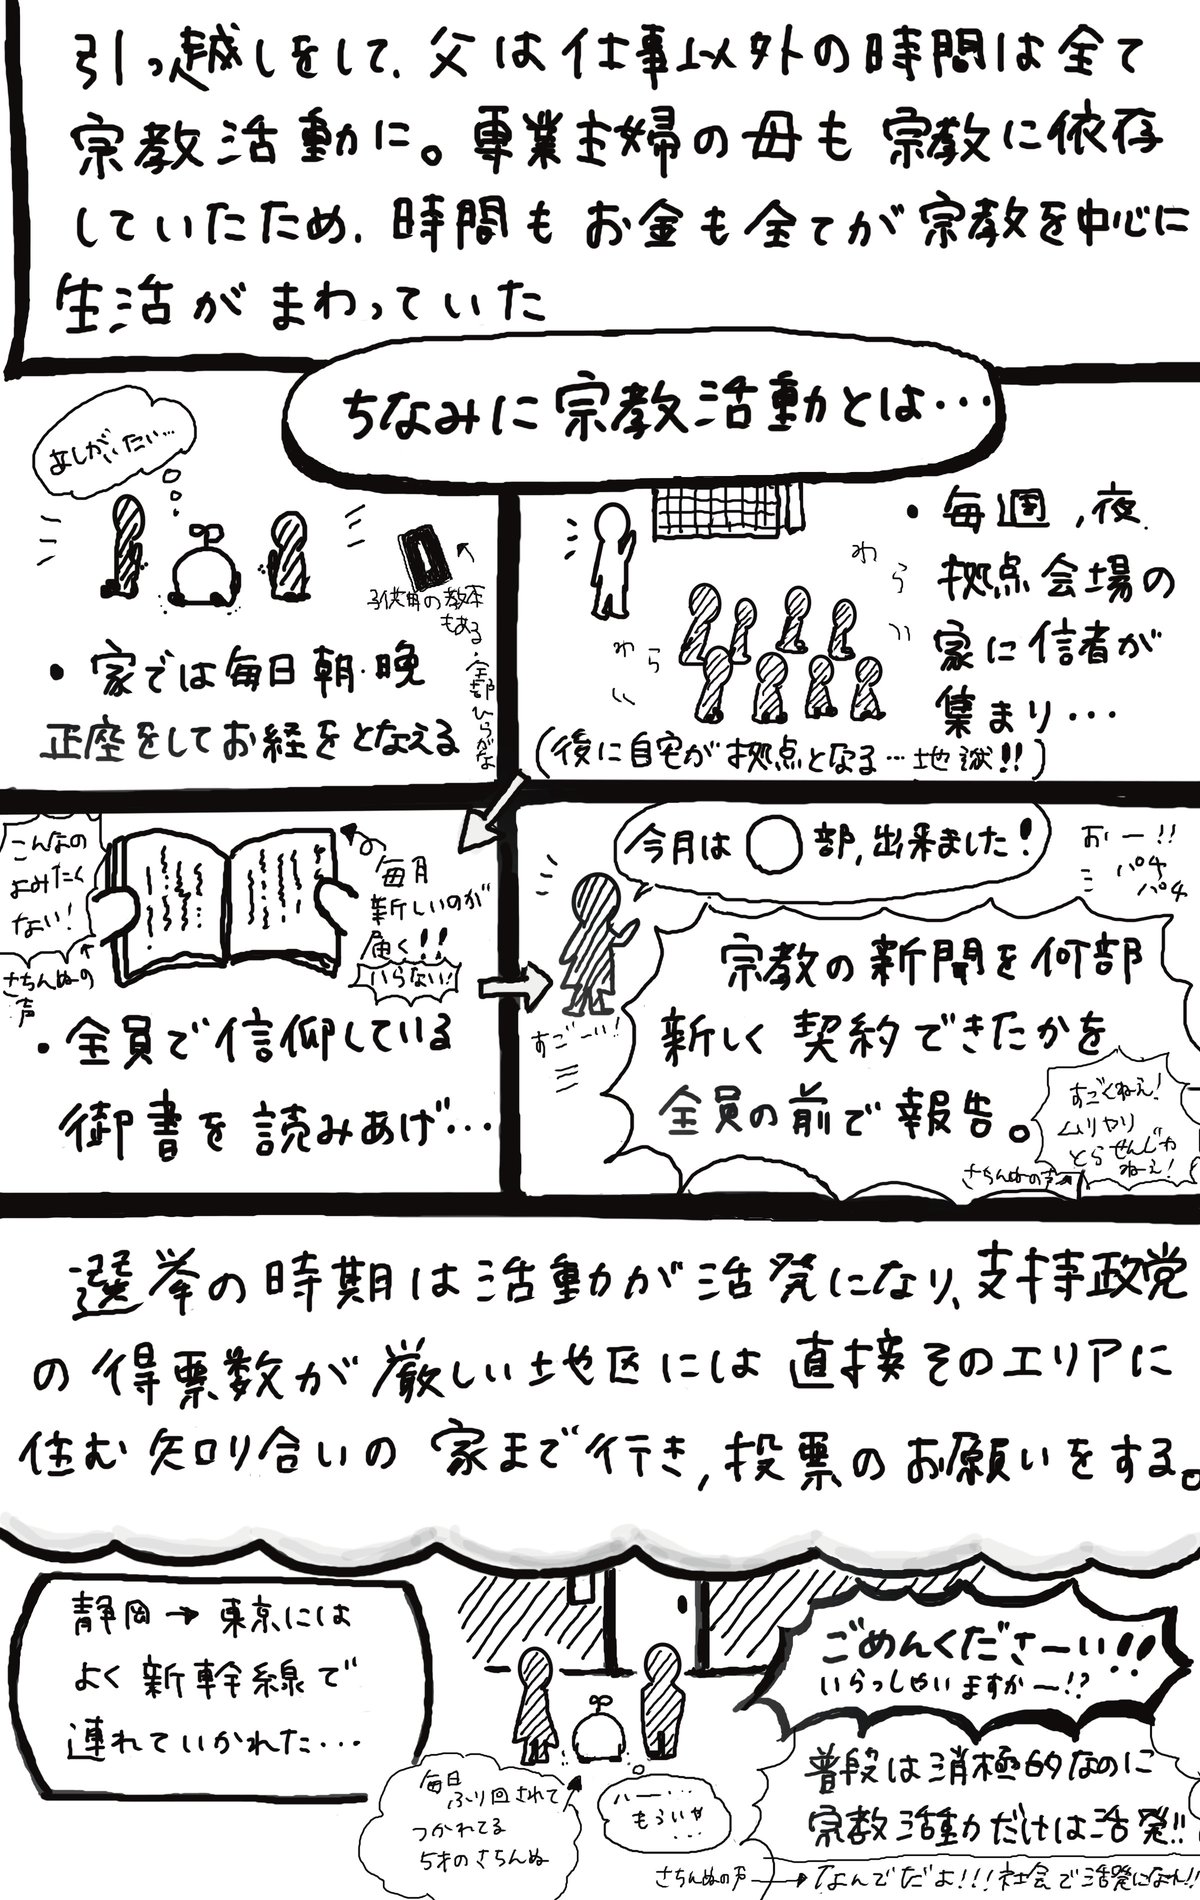 引っ越しをして、父は仕事以外の時間は全て
宗教活動に。専業主婦の母も宗教に依存
していたため、時間もお金も全てが宗教を中心に
生活がまわっていた
ちなみに宗教活動とは…
あしがいたい…
子供用の教本
もある・全部ひらがな
・家では毎日朝・晩
正座をしてお経をとなえる
わらわら
・毎週、夜、
拠点会場の
家に信者が
集まり…
(後に自宅が拠点となる…地獄!!)
こんなの
よみたく
ない!
さちんぬの
声
毎月
新しいのが
届く!!
いらない!
・全員で信仰している
御書を読みあげ…
今月は〇部、出来ました!
おー!!
パチ
パチ
すごーい!
宗教の新聞を何部
新しく契約できたかを
全員の前で報告。
すごくねぇ!
ムリヤリ
とらせんじゃ
ねぇ!
さちんぬの声
選挙の時期は活動が活発になり、支持政党
の得票数が厳しい地区には直接そのエリアに
住む知り合いの家まで行き、投票のお願いをする。
静岡→東京には
よく新幹線で
連れていかれた…
ごめんくださーい!!
いらっしゃいますかー!?
毎日
ふり回されて
つかれてる
5才のさちんぬ
ハー…
もういや
…
普段は消極的なのに
宗教活動だけは活発!!
さちんぬの声→なんでだよ!!!社会で活発になれ!!